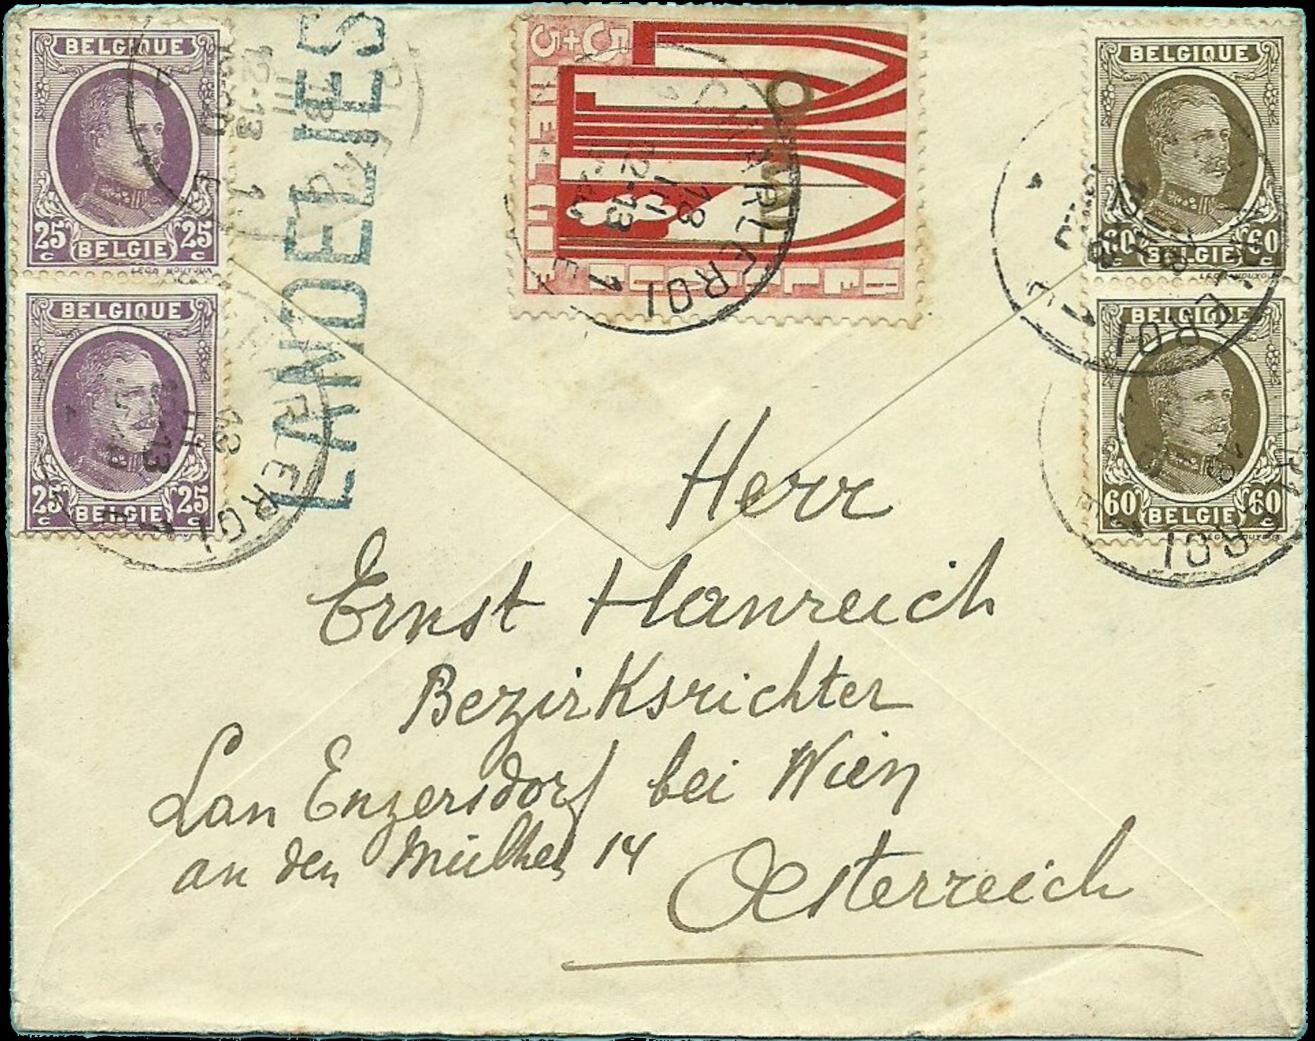 BELGIQUE
25 c 25 c
BELGIE
BELGIQUE
25 c 25 c
BELGIE
LANDELIES
5+5
CHARLEROI 1
18 III 12-13
BELGIQUE
60 c 60 c
BELGIE
BELGIQUE
60 c 60 c
BELGIE
Herr
Ernst Hanreich
Bezirksrichter
Lan Enzersdorf bei Wien
an den 14
Oesterreich